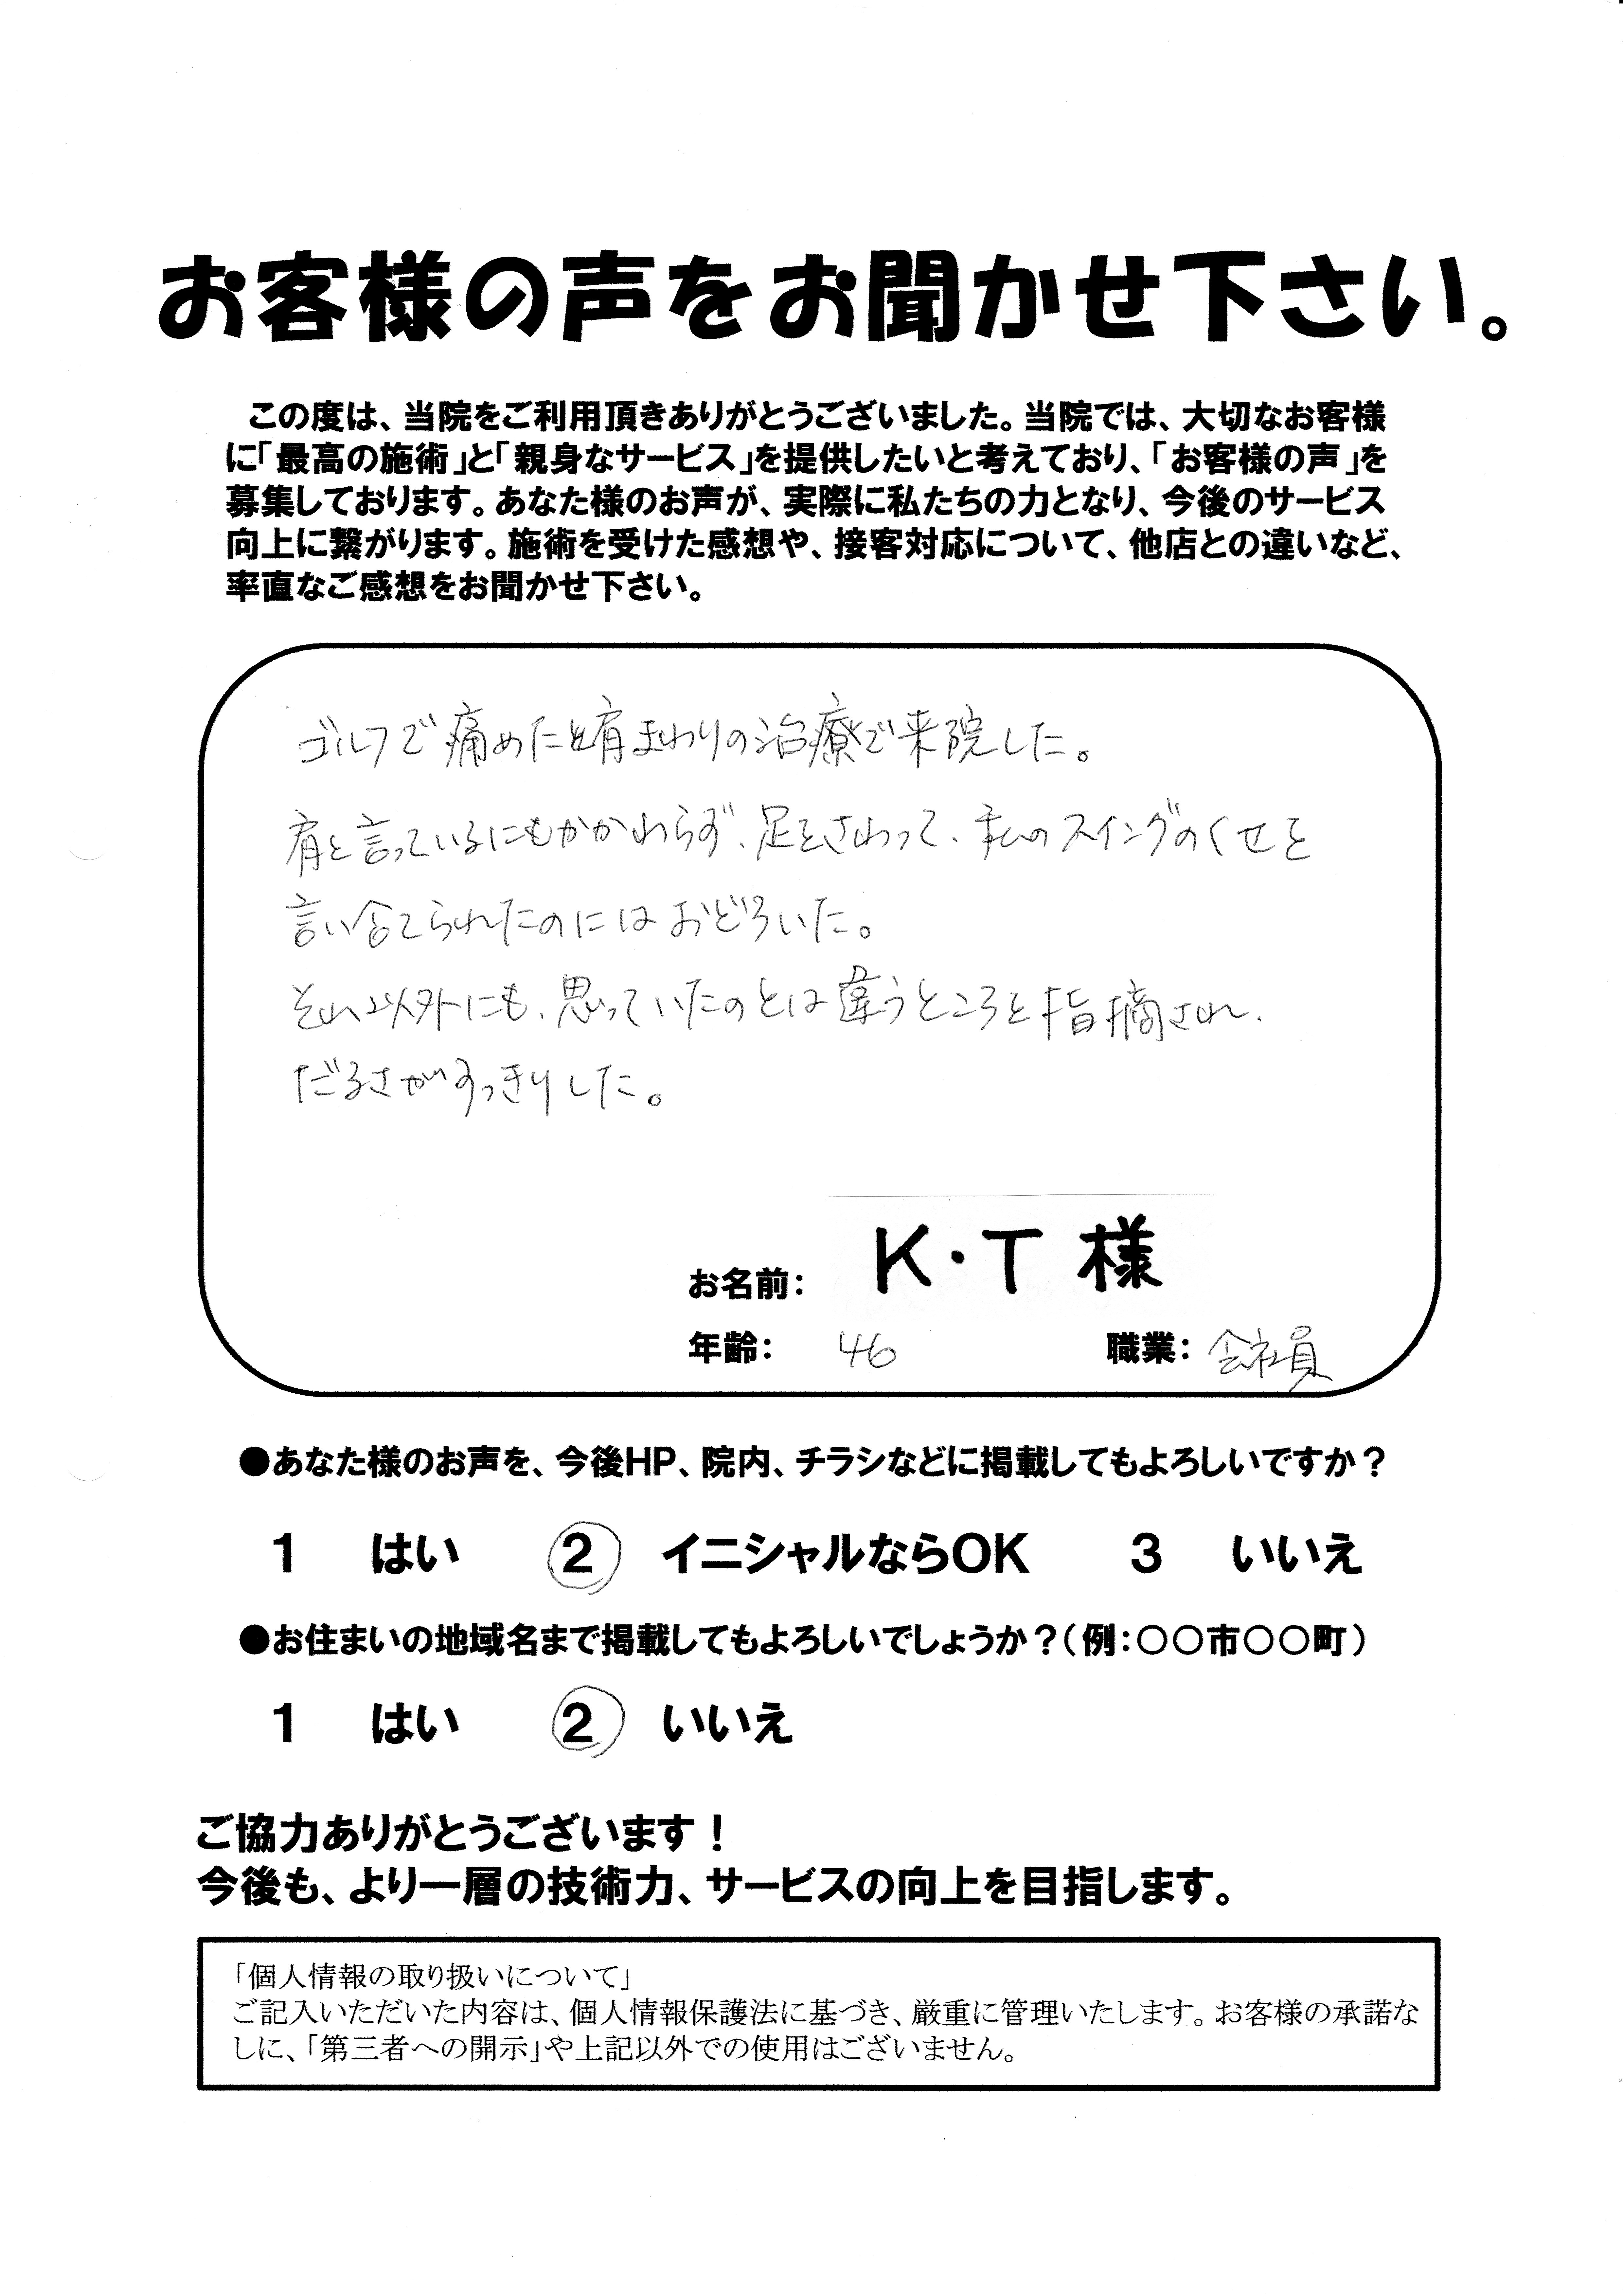 お客様の声をお聞かせ下さい。
この度は、当院をご利用頂きありがとうございました。当院では、大切なお客様
に「最高の施術」と「親身なサービス」を提供したいと考えており、「お客様の声」を
募集しております。あなた様のお声が、実際に私たちの力となり、今後のサービス
向上に繋がります。施術を受けた感想や、接客対応について、他店との違いなど、
率直なご感想をお聞かせ下さい。
ゴルフで痛めた肩まわりの治療で来院した。
肩と言っているにもかかわらず、足をさわって、私のスイングのくせを
言い当てられたのにはおどろいた。
それ以外にも、思っていたのとは違うところを指摘され、
だるさがすっきりした。
お名前： K・T 様
年齢： 46 職業： 会社員
●あなた様のお声を、今後HP、院内、チラシなどに掲載してもよろしいですか？
1 はい 2 イニシャルならOK 3 いいえ
●お住まいの地域名まで掲載してもよろしいでしょうか？（例：〇〇市〇〇町）
1 はい 2 いいえ
ご協力ありがとうございます！
今後も、より一層の技術力、サービスの向上を目指します。
「個人情報の取り扱いについて」
ご記入いただいた内容は、個人情報保護法に基づき、厳重に管理いたします。お客様の承諾な
しに、「第三者への開示」や上記以外での使用はございません。